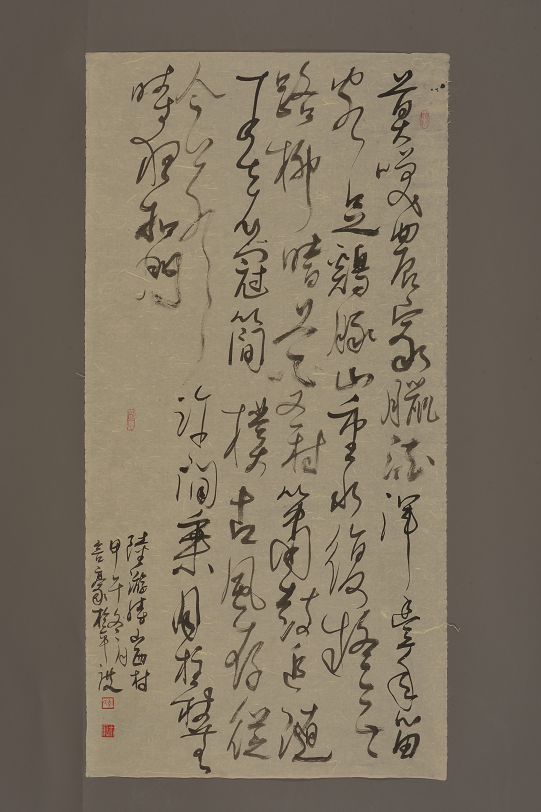 莫笑農家臘酒渾豐年留
客足鷄豚山重水復疑無
路柳暗花明又一村簫鼓追隨
春社近衣冠簡樸古風存從
今若許閒乘月拄杖無
時夜扣門
陸游詩山西村
甲午冬月